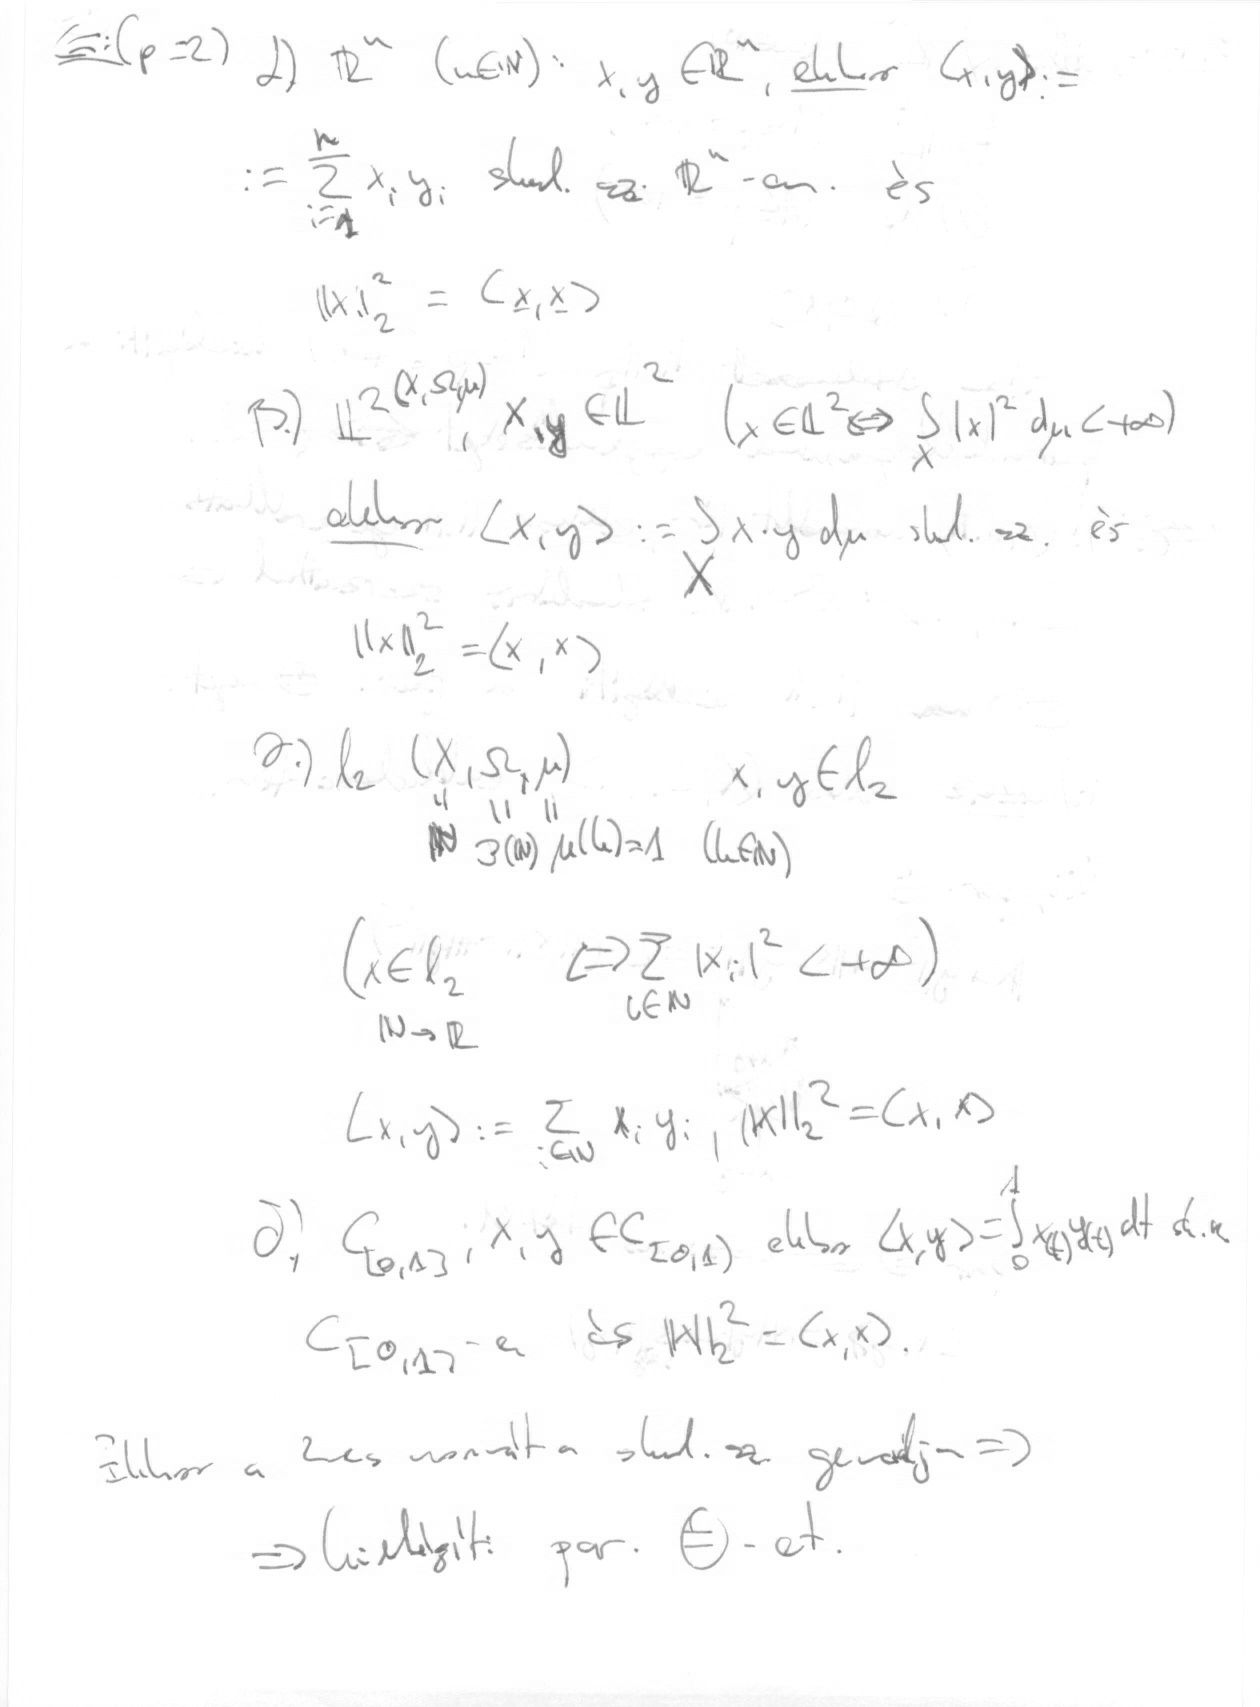 E: (p=2) α) ℝⁿ (n∈ℕ): x, y ∈ℝⁿ, ekkor ⟨x,y⟩:=
:= ∑_{i=1}^{n} x_i y_i skal. sz. ℝⁿ-en. és
||x||₂² = ⟨x,x⟩
β.) 𝕃²(X,Ω,μ), x,y ∈𝕃² (x∈𝕃² ⇔ ∫_X |x|² dμ < +∞)
ekkor ⟨x,y⟩ := ∫_X x·y dμ skal. sz. és
||x||₂² = ⟨x, x⟩
γ.) l₂ (X, Ω, μ) x, y ∈ l₂
" || ||
ℕ P(ℕ) μ(k)=1 (k∈ℕ)
(x∈l₂ ⇔ ∑_{i∈ℕ} |x_i|² < +∞)
ℕ→ℝ
⟨x,y⟩ := ∑_{i∈ℕ} x_i y_i, ||x||₂² = ⟨x, x⟩
δ.) C[0,1], x, y ∈C[0,1] ekkor ⟨x,y⟩ = ∫₀¹ x(t)y(t) dt sk. sz.
C[0,1]-en és ||x||₂² = ⟨x,x⟩.
Ekkor a 2-es normát a skal. sz. generálja ⇒
⇒ kielégíti par. ⊜-et.